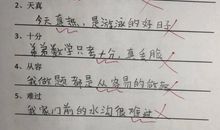 2、天真
今天真热，是游泳的好日子
3、十分
弟弟数学只考十分，真丢脸
4、从容
我做题都是从容易的做起
5、难过
我家门前的水沟很难过